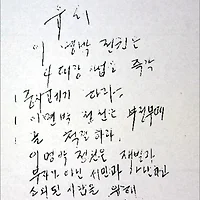 이 명박 정권은
4 대강 사업을 즉각
중지 폐기하라
이 명박 정권은 부정부패
를 척결하라.
이명박 정권은 재벌과
부자가 아닌 서민과 가난하고
소외된 사람을 위해